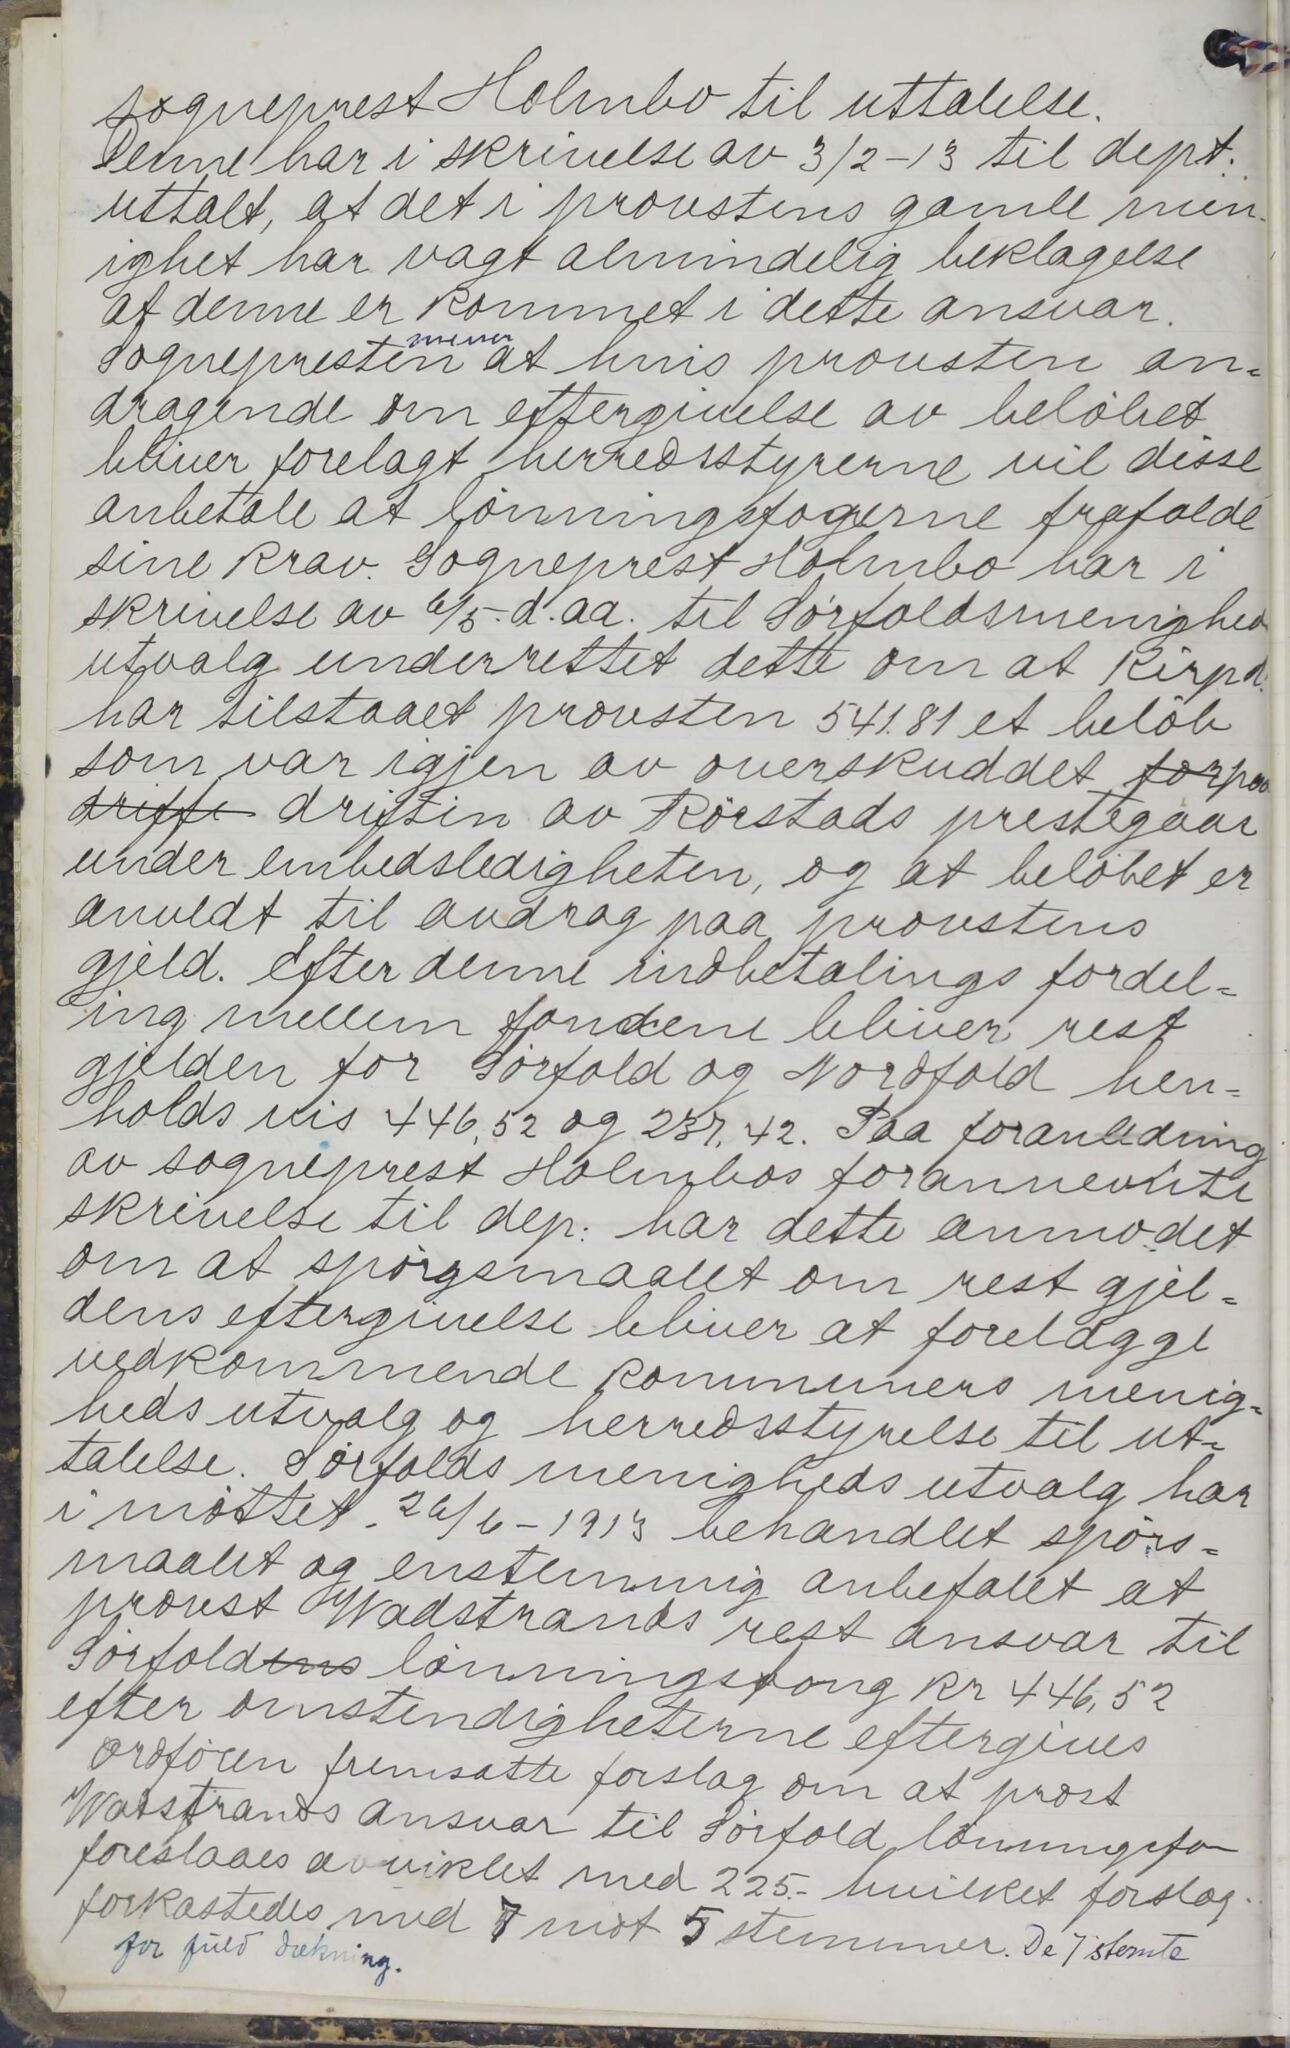 sogneprest Holmbo til uttalelse.
Denne har i skrivelse av 3/2-13 til dept.
uttalt, at det i provstens gamle men-
ighet har vagt almindelig beklagelse
at denne er kommet i dette ansvar.
Sognepresten mener at hvis provsten an=
dragende om eftergivelse av beløbet
bliver forelagt herredsstyrerne vil disse
anbetale at lønningsfogerne frafalde
sine krav. Sogneprest Holmbo har i
skrivelse av 6/5-d.aa. til Sørfoldsmenighed
utvalg underrettet dette om at Kirpd.
har tilstaaet provsten 541.81 et beløb
som var igjen av overskuddet for paa
driffe driftin av Rørstads prestegaar
under embedsledigheten, og at beløbet er
anveldt til avdrag paa provstens
gjeld. Efter denne indbetalings fordel=
ing mellem fondene bliver rest
gjelden for Sørfold og Nordfold hen=
holds vis 446,52 og 237,42. Paa foranledning
av sogneprest Holmbos forannevnte
skrivelse til dep. har dette anmodet
om at spørgsmaalet om rest gjel=
dens eftergivelse bliver at forelægge
vedkommende kommuners menig=
heds utvalg og herredsstyrelse til ut=
talelse. Sørfolds menigheds utvalg har
i møttet 26/6-1913 behandlet spørs=
maalet og enstemmig anbefalet at
provst Wadstrands rest ansvar til
Sørfoldens lønningsfong kr 446,52
efter omstendigheterne eftergives
Ordføren fremsatte forslag om at prost
Wadstrands ansvar til Sørfold lønningsfo
foreslaaes avviklet med 225.- hvilket forslag
forkastedes med 7 mot 5 stemmer. De 7 stemte
for fuld dækning.